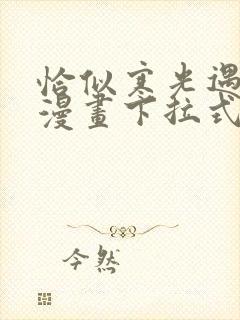 恰似寒光遇
漫畫下拉式
今然